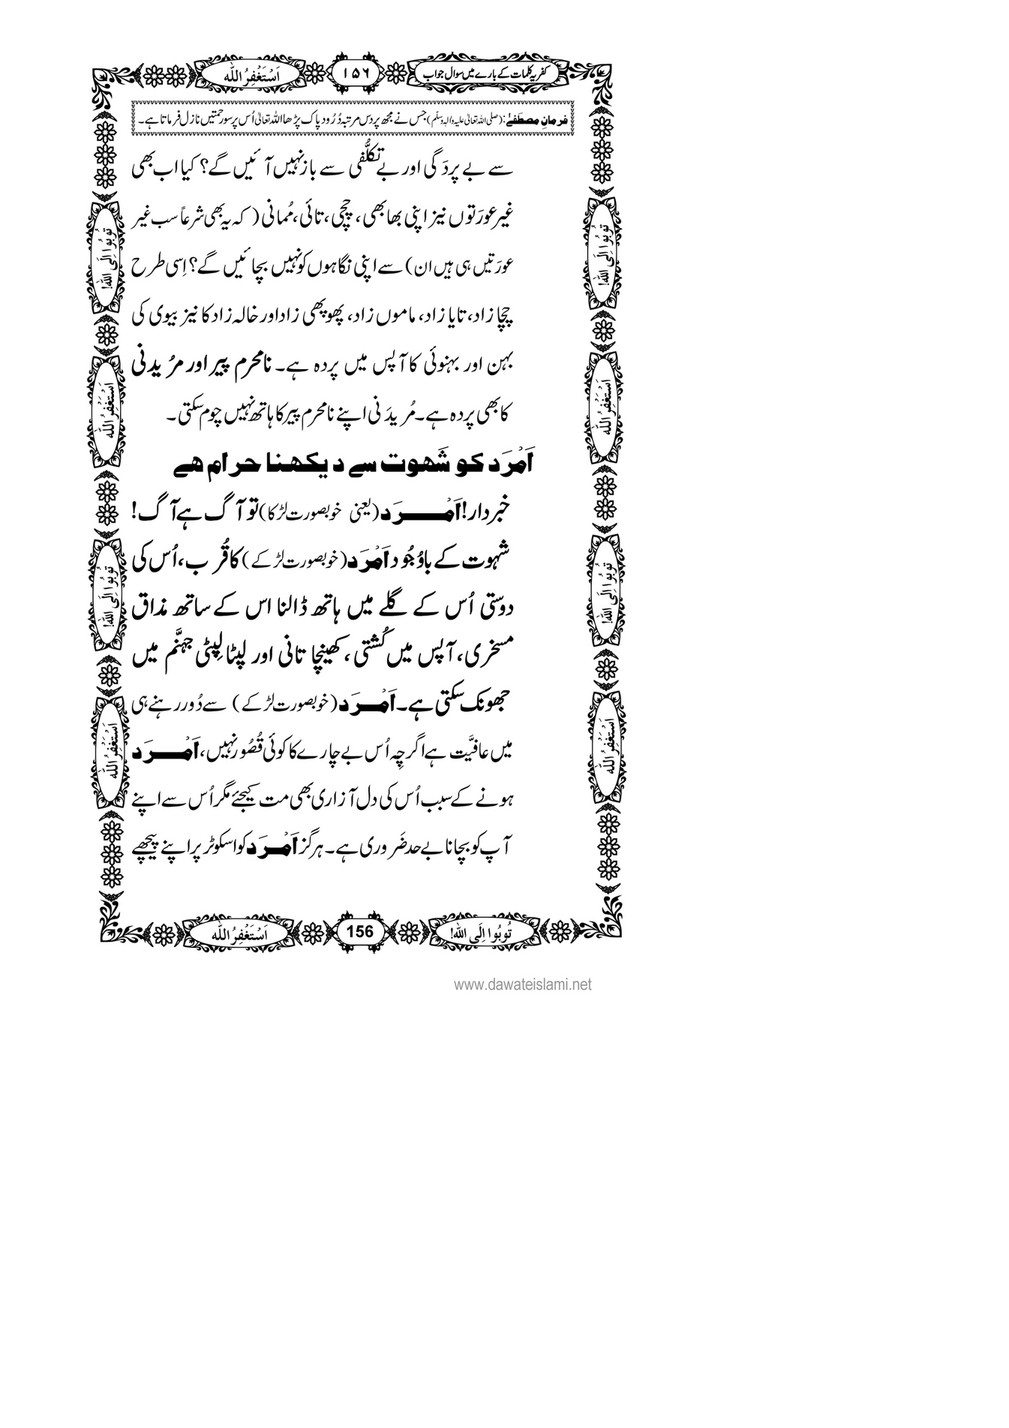 کفریہ کلمات کے بارے میں سوال جواب ۱۵۶ اَسْتَغْفِرُ اللّٰه
فرمانِ مصطفٰے: (صلی اللہ تعالیٰ علیہ والہ وسلّم) جس نے مجھ پر دس مرتبہ دُرُود پاک پڑھا اللہ تعالیٰ اُس پر سو رحمتیں نازل فرماتا ہے۔
سے بے پردَگی اور بے تکلُّفی سے باز نہیں آئیں گے؟ کیا اب بھی
غیر عورَتوں نیز اپنی بھابھی، چچی، تائی، مُمانی (کہ یہ بھی شرعاً سب غیر
عورَتیں ہی ہیں ان) سے اپنی نگاہوں کو نہیں بچائیں گے؟ اِسی طرح
چچا زاد، تایا زاد، ماموں زاد، پھوپھی زاد اور خالہ زاد کا نیز بیوی کی
بہن اور بہنوئی کا آپس میں پردہ ہے۔ نامحرم پیر اور مُریدنی
کا بھی پردہ ہے۔ مُریدَنی اپنے نامحرم پیر کا ہاتھ نہیں چوم سکتی۔
اَمْرَد کو شَھوت سے دیکھنا حرام ھے
خبردار! اَمْرَد (یعنی خوبصورت لڑکا) تو آگ ہے آگ!
شہوت کے باوُجُود اَمْرَد (خوبصورت لڑکے) کا قُرب، اُس کی
دوستی اُس کے گلے میں ہاتھ ڈالنا اس کے ساتھ مذاق
مسخری، آپس میں کُشتی، کھینچا تانی اور لپٹا لِپٹی جہنَّم میں
جھونک سکتی ہے۔ اَمْرَد (خوبصورت لڑکے) سے دُور رہنے ہی
میں عافیَّت ہے اگرچِہ اُس بے چارے کا کوئی قُصُور نہیں، اَمْرَد
ہونے کے سبب اُس کی دل آزاری بھی مت کیجئے مگر اُس سے اپنے
آپ کو بچانا بے حد ضَروری ہے۔ ہرگز اَمْرَد کو اسکوٹر پر اپنے پیچھے
تُوبُوا اِلَی اللّٰه!
اَسْتَغْفِرُ اللّٰه
تُوبُوا اِلَی اللّٰه!
اَسْتَغْفِرُ اللّٰه
تُوبُوا اِلَی اللّٰه!
اَسْتَغْفِرُ اللّٰه
تُوبُوا اِلَی اللّٰه!
اَسْتَغْفِرُ اللّٰه
تُوبُوا اِلَی اللّٰه! 156 اَسْتَغْفِرُ اللّٰه
www.dawateislami.net